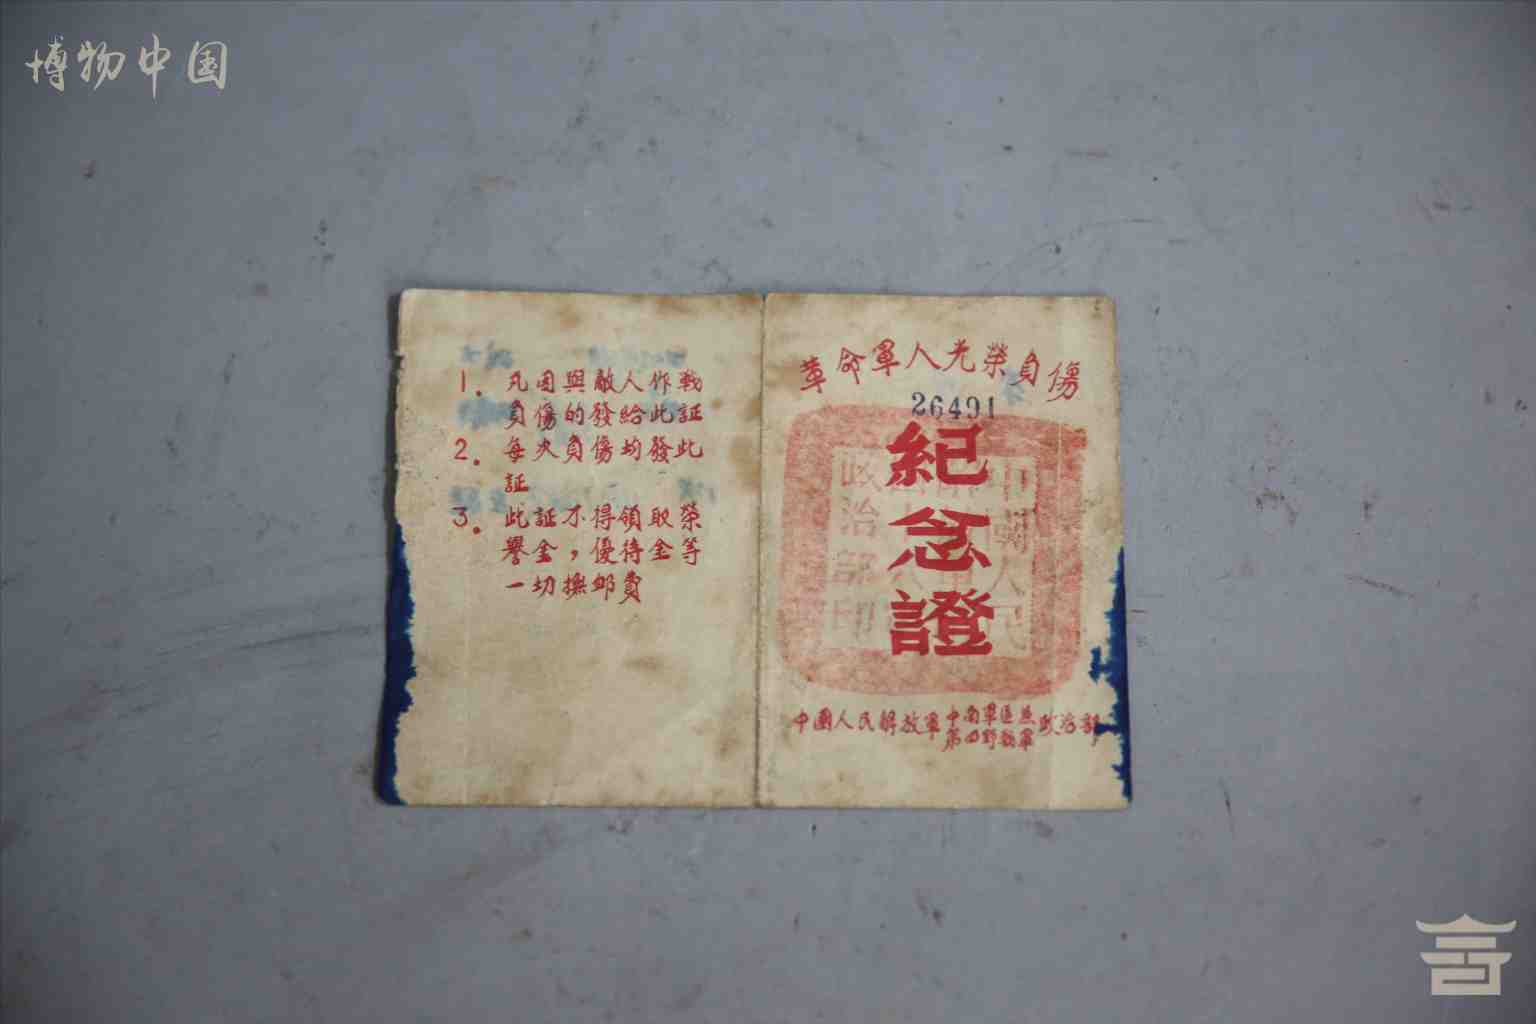 博物中国
1. 凡因與敵人作戰
負傷的發給此証
2. 每次負傷均發此
証
3. 此証不得領取榮
譽金，優待金等
一切撫卹費
革命軍人光榮負傷
26491
紀念證
政治部印
中國人民解放軍中南軍區兼第四野戰軍政治部